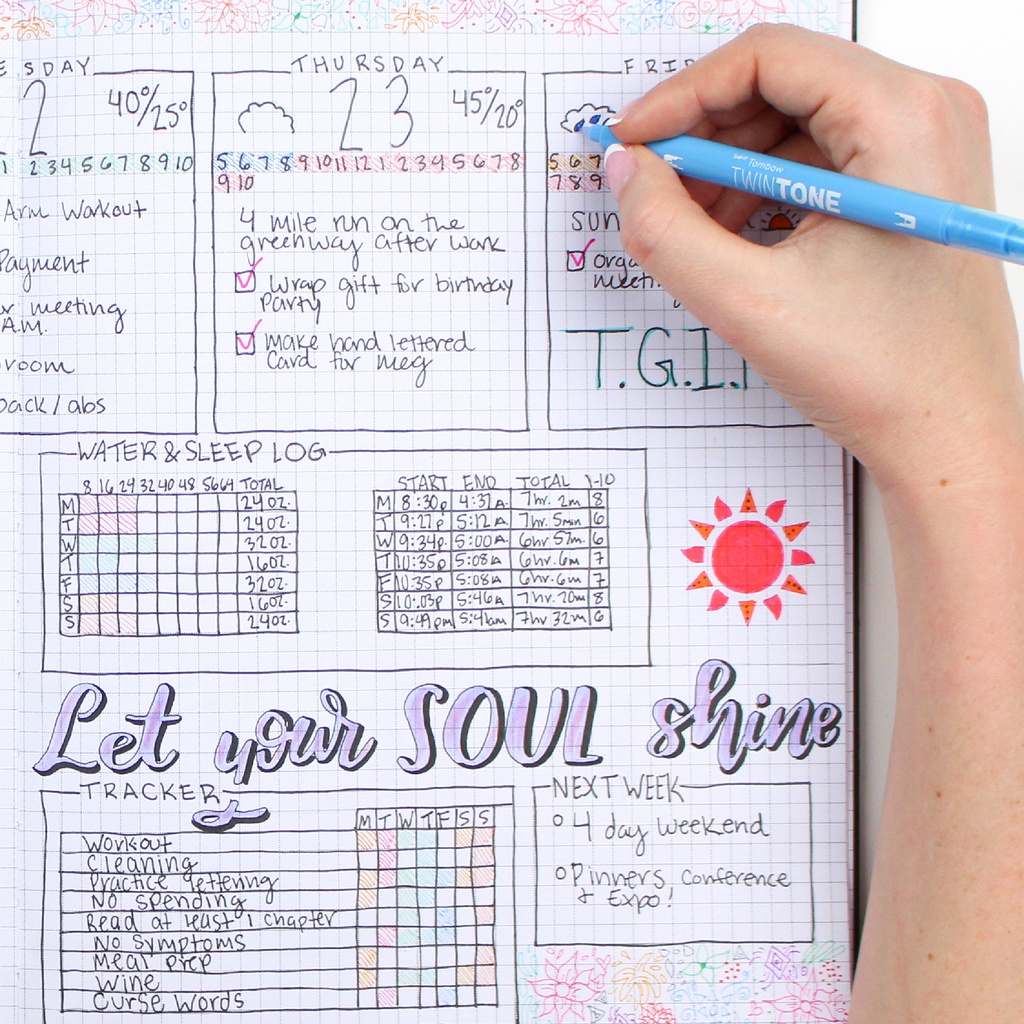 ESDAY
2
40°/25°
1 2 3 4 5 6 7 8 9 10
Arm Workout
Payment
meeting
A.M.
room
back/abs
THURSDAY
23
45°/20°
5 6 7 8 9 10 11 12 1 2 3 4 5 6 7 8
9 10
4 mile run on the
greenway after work
Wrap gift for birthday
party
Make hand lettered
card for meg
FRI
5 6 7
7 8 9
SUN
orga
meeti
T.G.I.
TWINTONE
Tombow
WATER & SLEEP LOG
8 16 24 32 40 48 56 64 TOTAL
M 24oz.
T 24oz.
W 32oz.
T 16oz.
F 32oz.
S 16oz.
S 24oz.
START END TOTAL 1-10
M 8:30p 4:37A. 7hr. 2m 8
T 9:27p 5:12A. 7hr. 5min 6
W 9:34p. 5:00A. 6hr 57m. 6
T 10:35p 5:08A 6hr. 6m 7
F 10:35p 5:08A 6hr. 6m 7
S 10:03p 5:46A 7hr. 20m 8
S 9:49pm 5:41am 7hr 32m 6
Let your SOUL shine
TRACKER
M T W T F S S
Workout
Cleaning
Practice lettering
No spending
Read at least 1 chapter
No Symptoms
Meal prep
Wine
Curse Words
NEXT WEEK
4 day weekend
Pinners Conference
+ Expo!